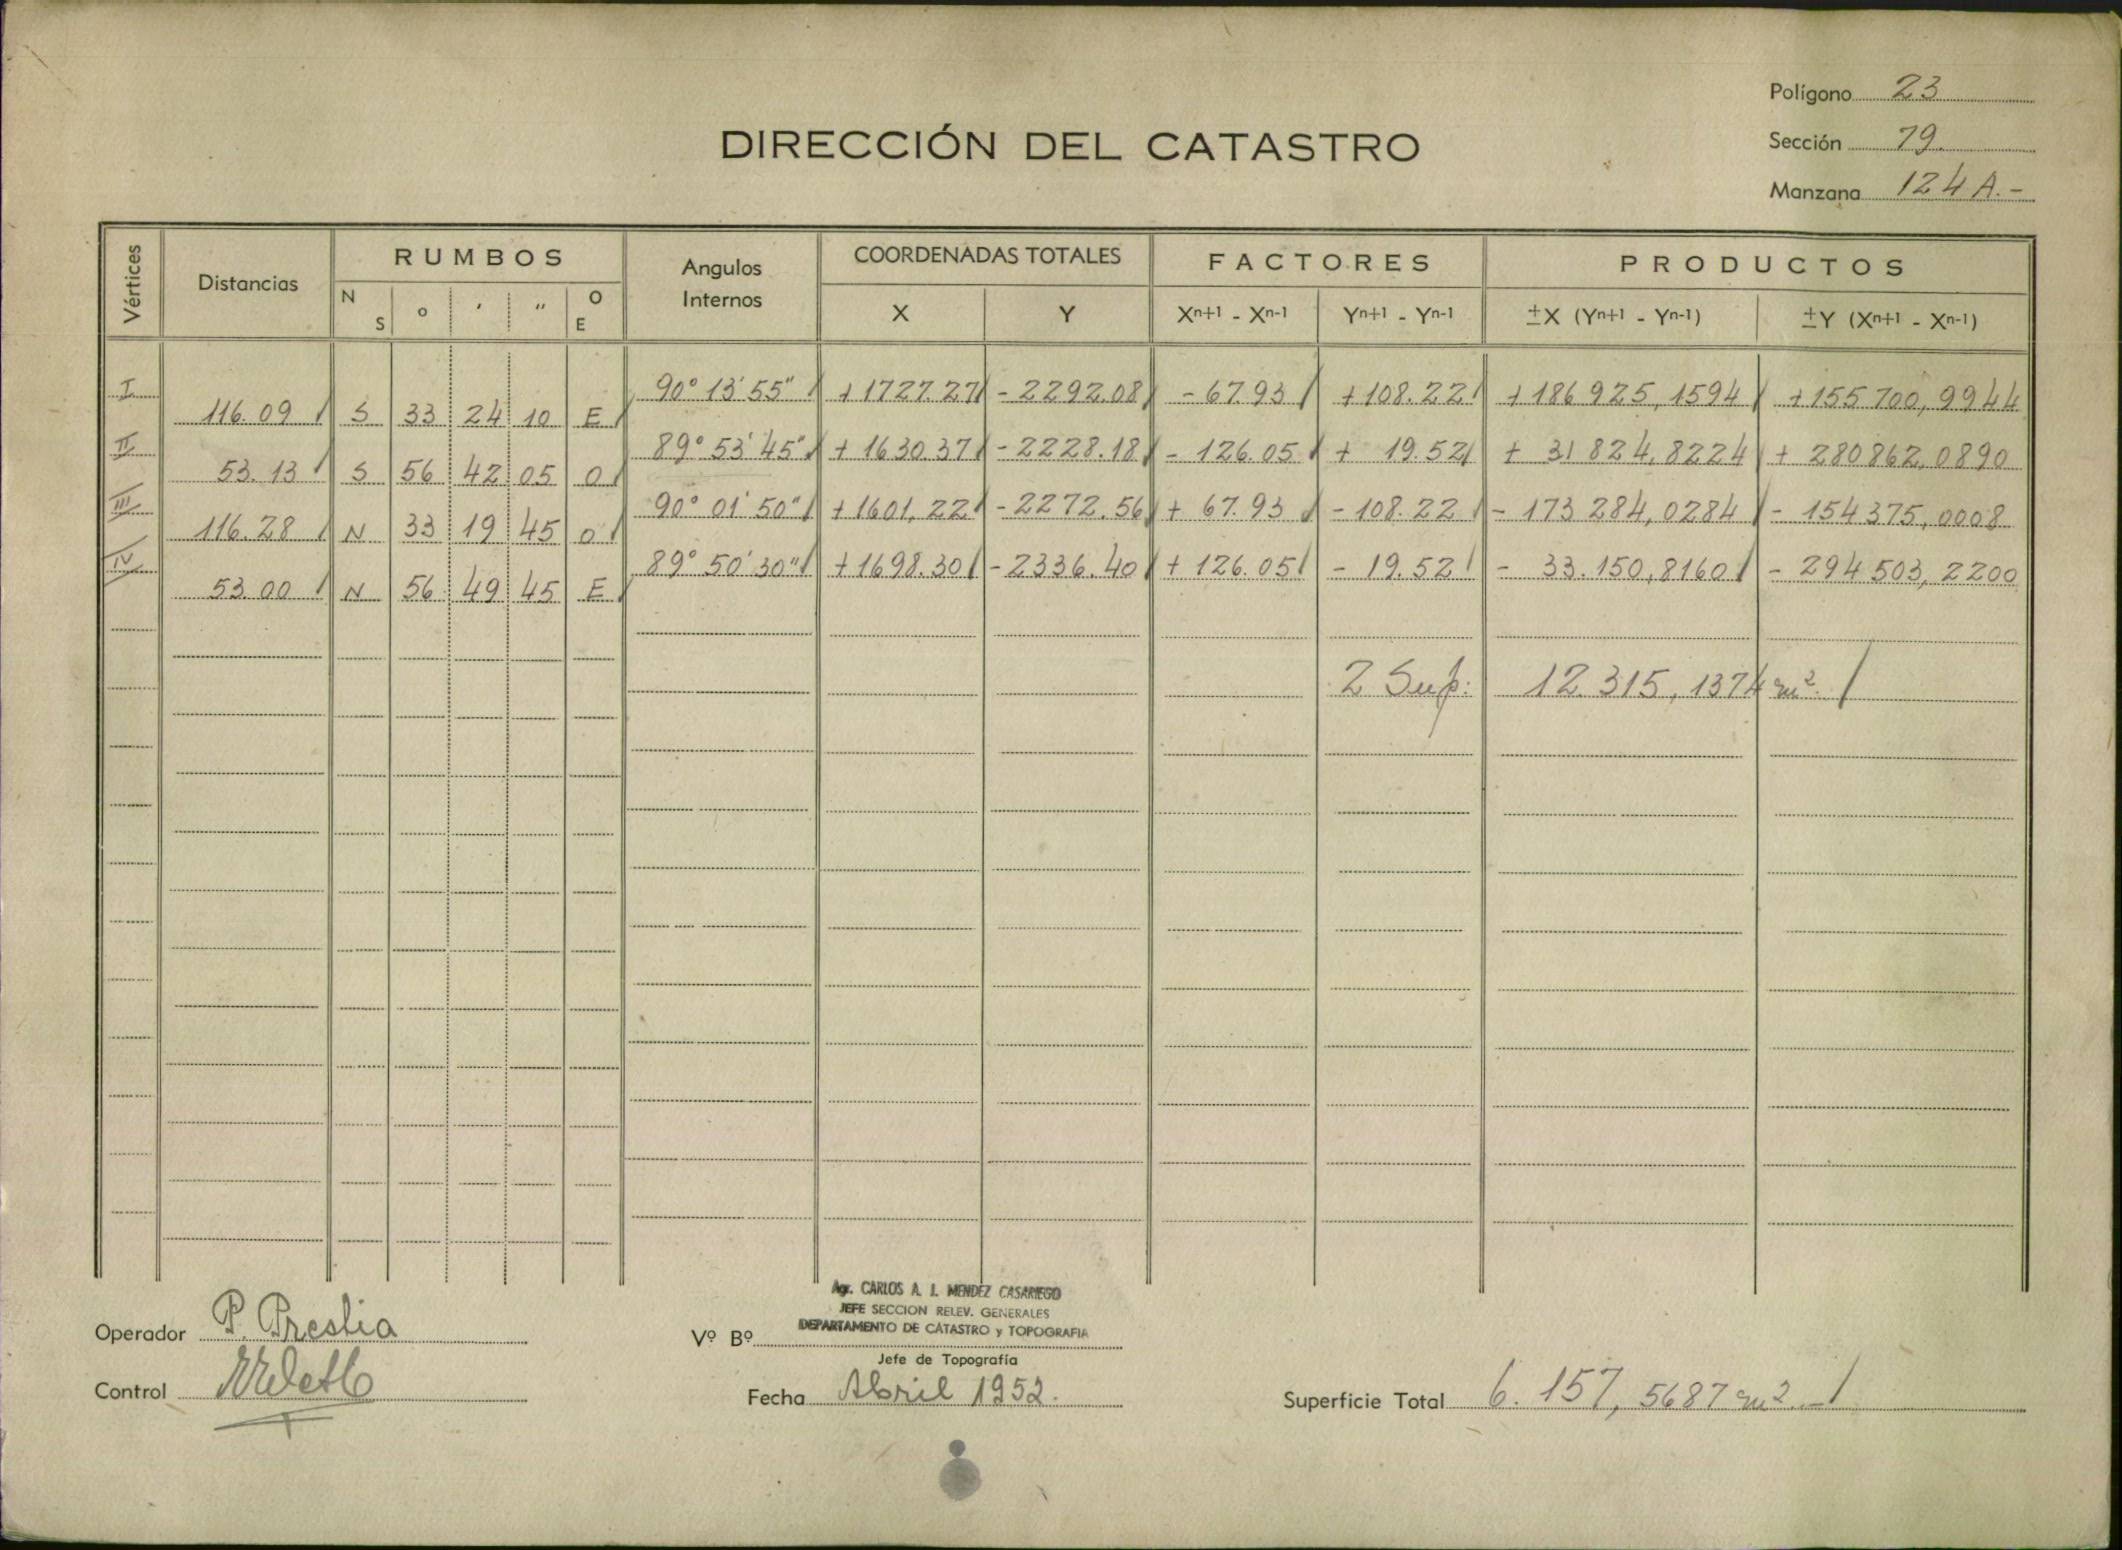 Polígono 23
DIRECCIÓN DEL CATASTRO
Sección 79.
Manzana 124 A.-
Vértices Distancias RUMBOS Angulos Internos COORDENADAS TOTALES FACTORES PRODUCTOS
N S o ' " O E X Y Xn+1 - Xn-1 Yn+1 - Yn-1 ±X (Yn+1 - Yn-1) ±Y (Xn+1 - Xn-1)
I 90° 13' 55" +1727.27 -2292.08 -67.93 +108.22 +186925,1594 +155700,9944
116.09 S 33 24 10 E
II 89° 53' 45" +1630.37 -2228.18 -126.05 + 19.52 + 31824,8224 + 280862,0890
53.13 S 56 42 05 O
III 90° 01' 50" +1601,22 -2272.56 + 67.93 -108.22 - 173284,0284 - 154375,0008
116.28 N 33 19 45 O
IV 89° 50' 30" +1698.30 -2336.40 + 126.05 - 19.52 - 33.150,8160 - 294503,2200
53.00 N 56 49 45 E
2 Sup: 12315,1374 m2.
Agr. CARLOS A. J. MENDEZ CASARIEGO
JEFE SECCION RELEV. GENERALES
DEPARTAMENTO DE CATASTRO y TOPOGRAFIA
Operador P. Preslia
Vº Bº
Jefe de Topografía
Control
Fecha Abril 1952.
Superficie Total 6.157,5687 m2.-